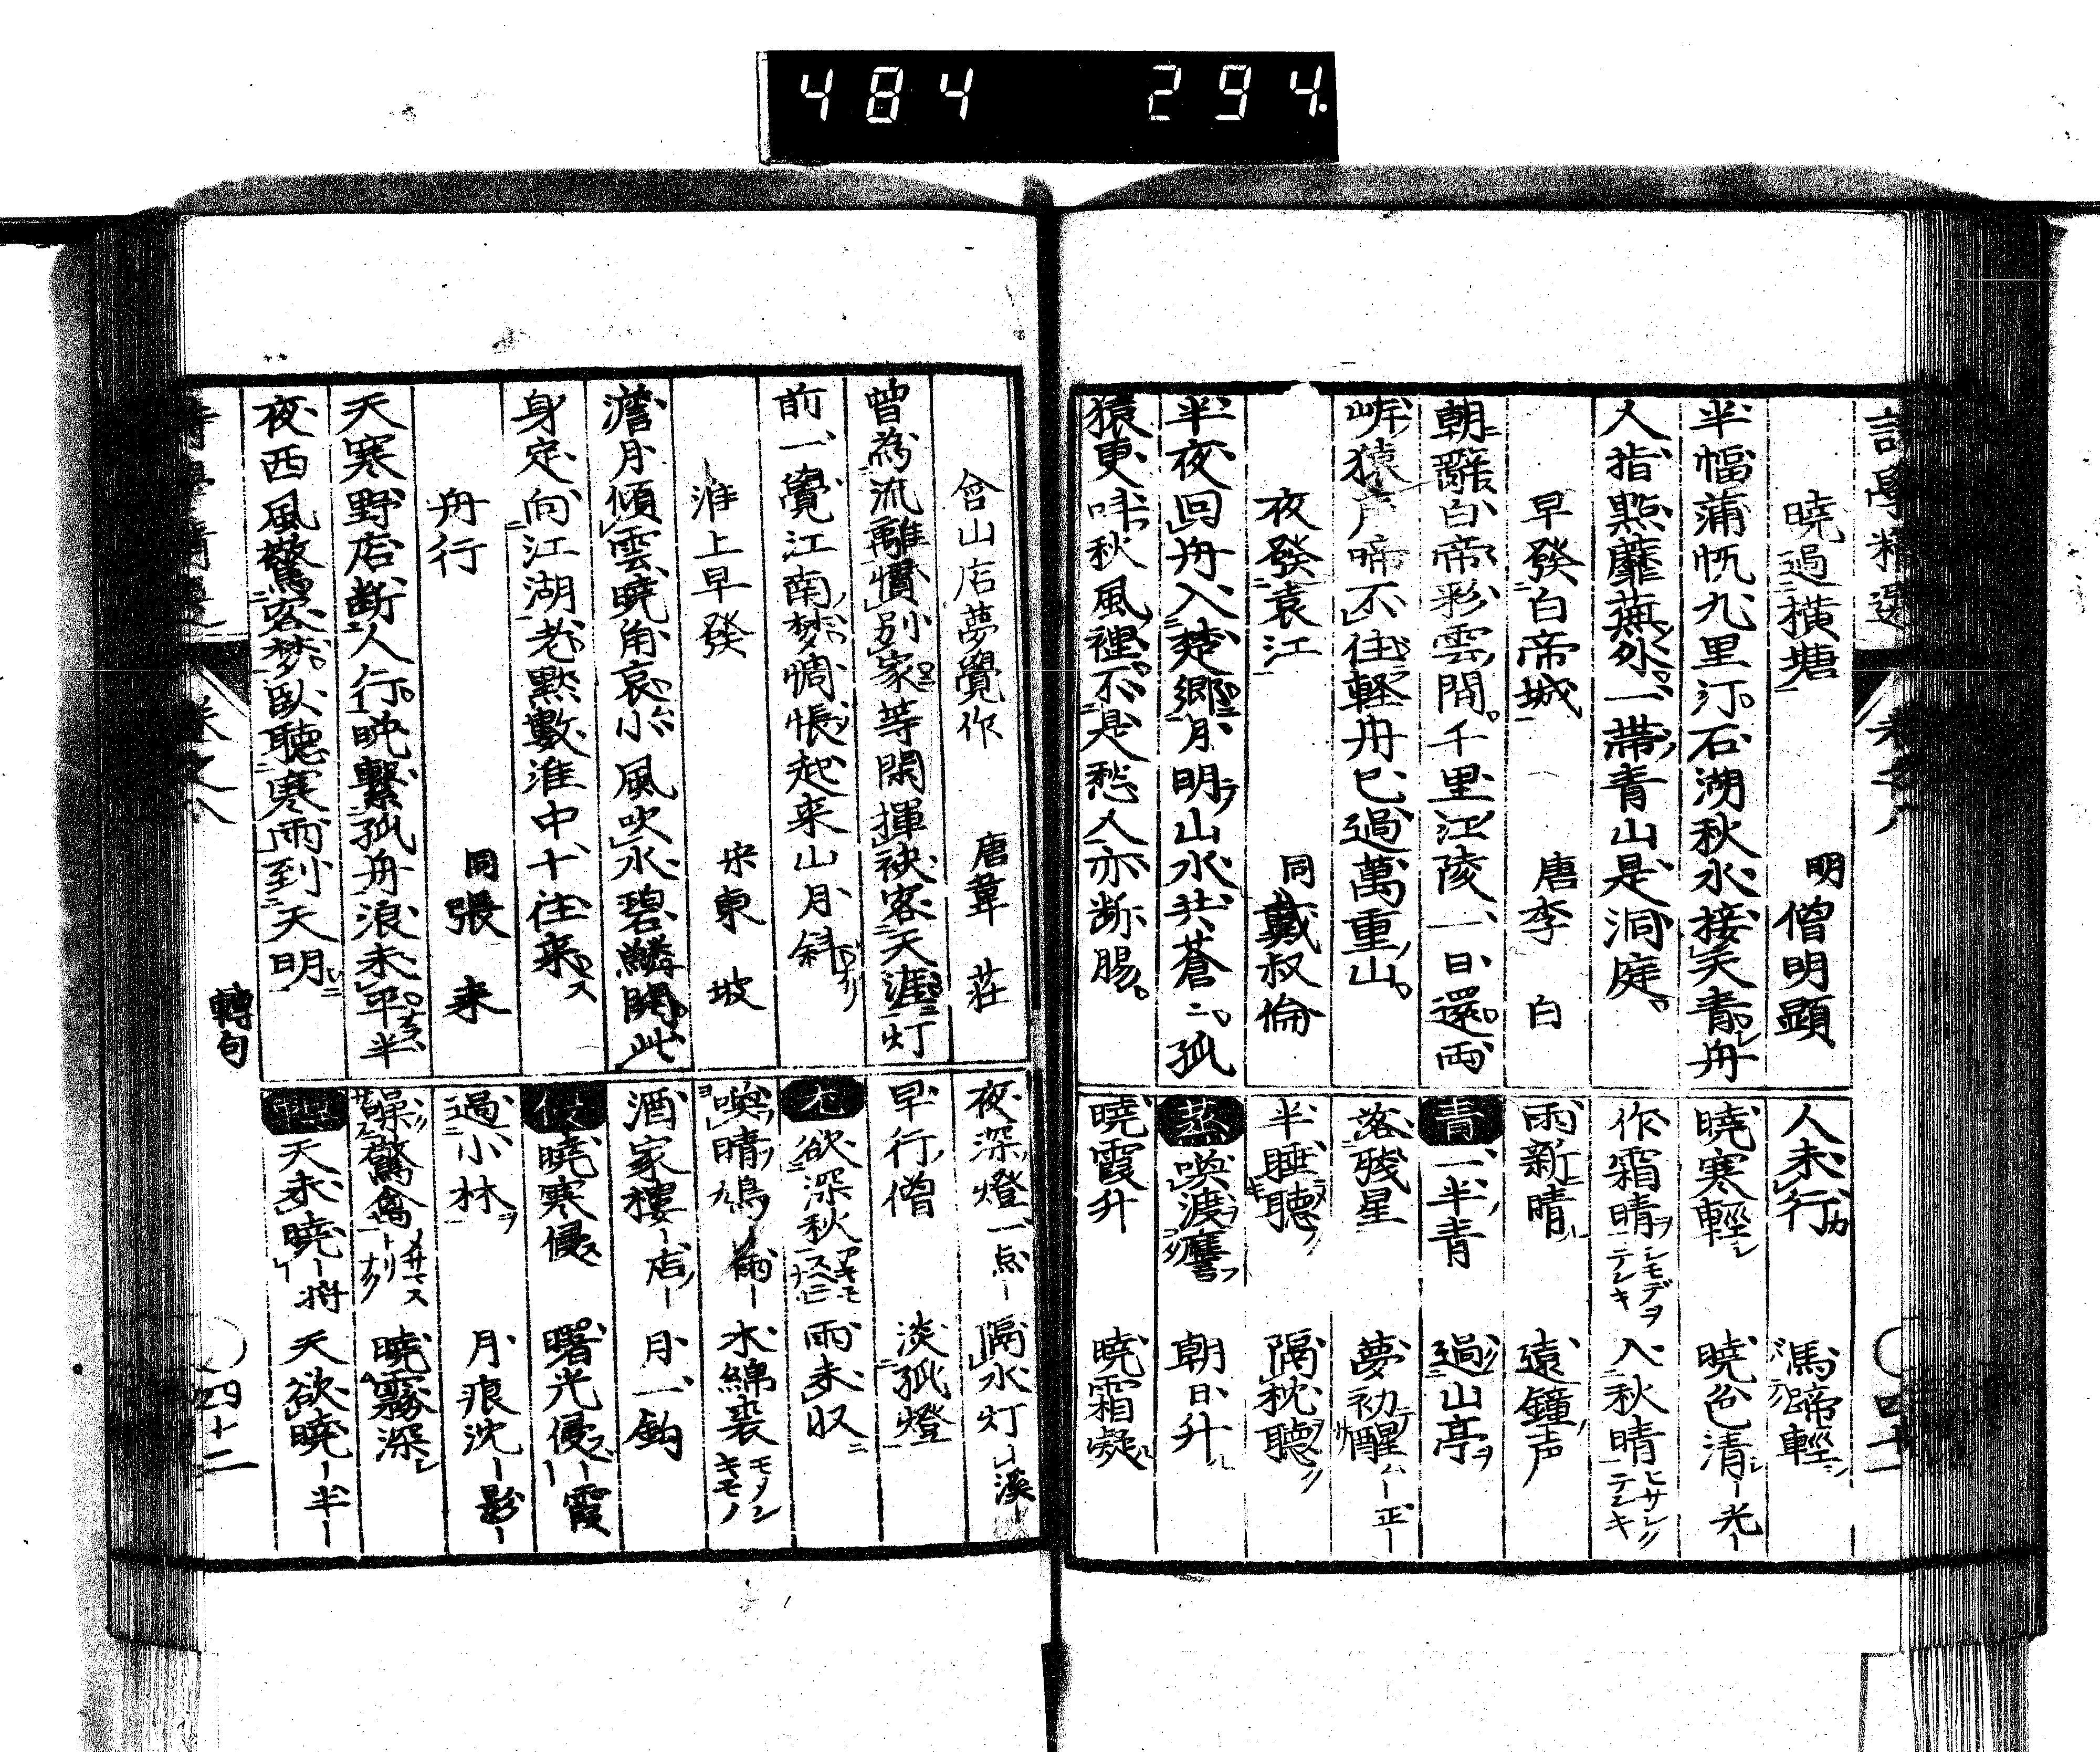 484 294.
暁過横塘 明僧明顕
半幅蒲帆九里汀石湖秋水接天青舟
人指點蘼蕪外一帯青山是洞庭
早發白帝城 唐李白
朝辭白帝彩雲間千里江陵一日還両
岸猿声啼不住軽舟已過萬重山
夜發袁江 同戴叔倫
半夜回舟入楚郷月明山水共蒼〻孤
猿更叫秋風裡不是愁人亦断腸
人未行 馬蹄輕
暁寒輕 暁色清 光
作霜晴 シモデヲ テンキ 入秋晴 ヒサシ テンキ
雨新晴 遠鐘声
青 一半青 過山亭
落残星 夢初醒 正
半睡聴 隔枕聴
蒸 喚渡譍 朝日升
暁霞升 暁霜凝
含山店夢覺作 唐韋莊
曾為流離慣別家等閑揮袂客天涯灯
前一覺江南梦惆悵起来山月斜
淮上早發 宋東坡
澹月傾雲暁角哀小風吹水碧鱗開此
身定向江湖老黙數淮中十往来
舟行 同張耒
天寒野店断人行晩繋孤舟浪未平半
夜西風驚客梦臥聴寒雨到天明
轉句
夜深燈一点 隔水灯 溪
早行僧 淡孤燈
尤 欲深秋 雨未収
喚晴鳩 雨 木綿裘 キモノ
酒家樓 店 月一鈎
侵 暁寒侵 曙光侵 霞
過小林 月痕沈 影
噪驚禽 暁霧深
天未暁 将 天欲暁 半
四十二